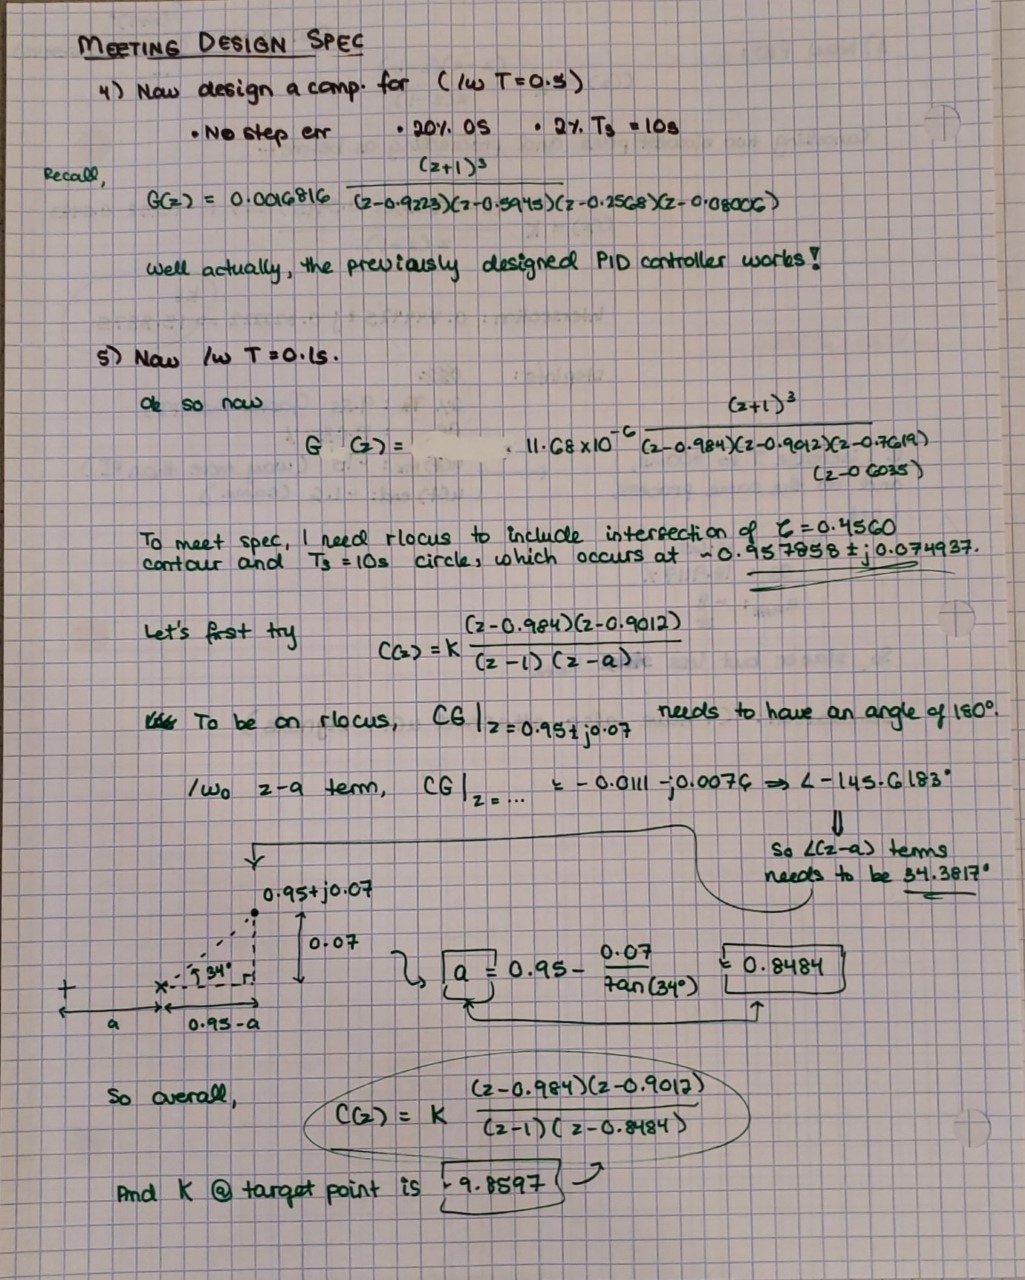 MEETING DESIGN SPEC
4) Now design a comp. for (/w T=0.5)
• No step err • 20% OS • 2% Ts = 10s
Recall,
G(z) = 0.0016816 (z+1)³ / (z-0.9223)(z-0.5945)(z-0.2568)(z-0.08006)
Well actually, the previously designed PID controller works!
5) Now /w T=0.1s.
Ok so now
G (z) = 11.68×10⁻⁶ (z+1)³ / (z-0.984)(z-0.9012)(z-0.7619)
(z-0.6035)
To meet spec, I need rlocus to include intersection of ζ=0.4560
contour and Ts=10s circle, which occurs at ~0.957858 ± j0.074937.
Let's first try C(z) = K (z-0.984)(z-0.9012) / (z-1)(z-a)
To be on rlocus, CG|z=0.95±j0.07 needs to have an angle of 180°.
/wo z-a term, CG|z=... = -0.0111 -j0.0076 ⇒ ∠-145.6183°
⇓
So ∠(z-a) terms
needs to be 34.3817°
0.95+j0.07
0.07
34°
a 0.95-a
a = 0.95 - 0.07 / tan(34°) = 0.8484
So overall, C(z) = K (z-0.984)(z-0.9012) / (z-1)(z-0.8484)
And K @ target point is 9.8597